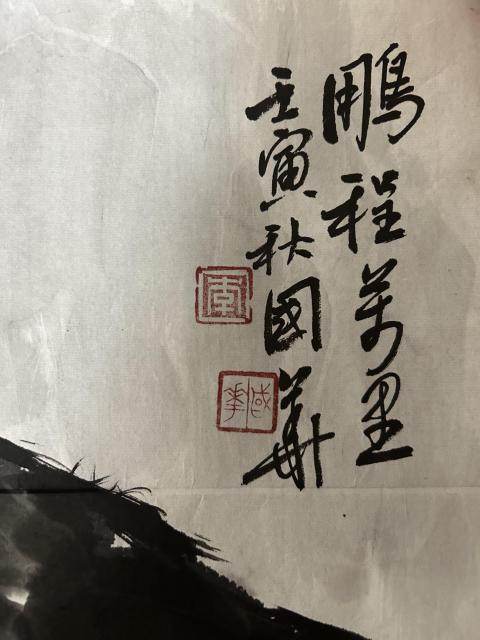 鵬程萬里
壬寅秋國華